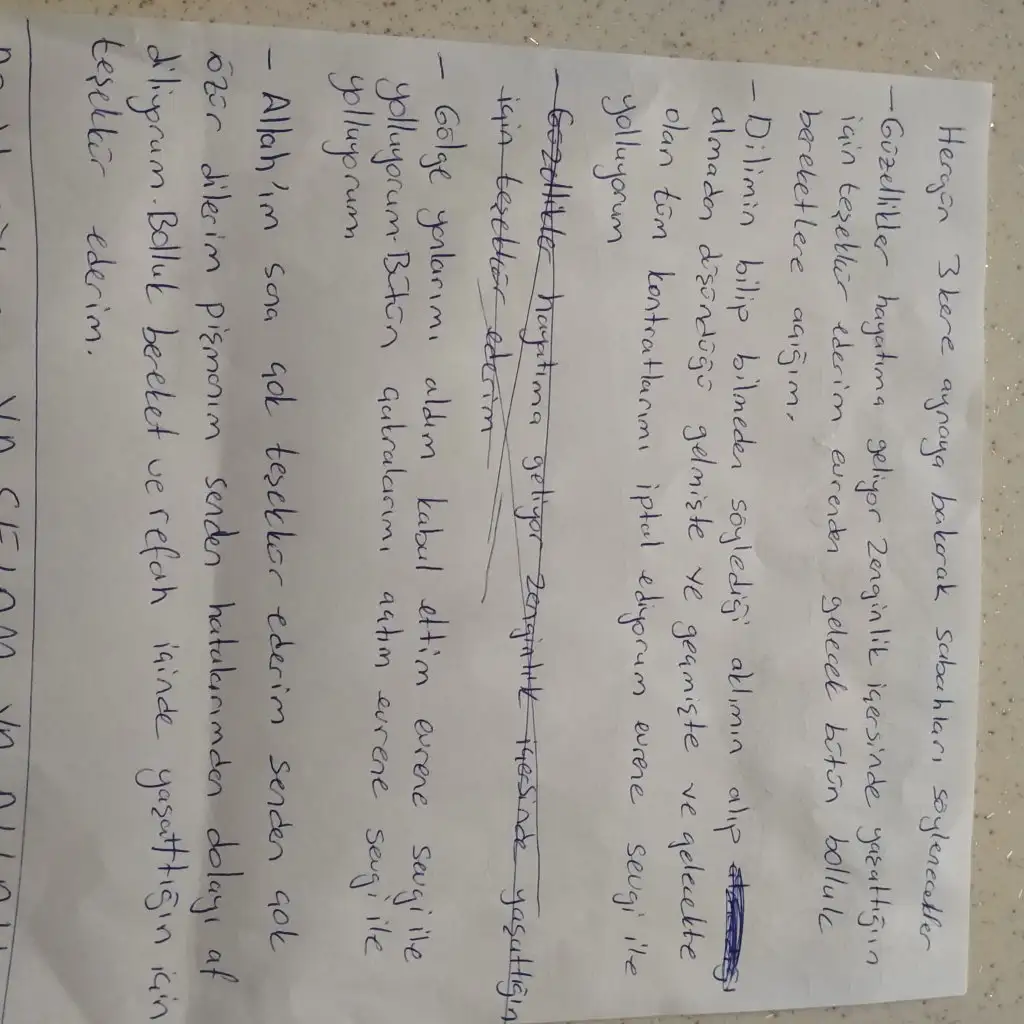 Hergün 3 kere aynaya bakarak sabahları söylenecekler
- Güzellikler hayatıma geliyor zenginlik içersinde yaşattığın
için teşekkür ederim evrenden gelecek bütün bolluk
bereketlere açığım.
- Dilimin bilip bilmeden söylediği aklımın alıp
almadan düşündüğü gelmişte ve geçmişte ve gelecekte
olan tüm kontratlarımı iptal ediyorum evrene sevgi ile
yolluyorum
- Güzellikler hayatıma geliyor zenginlik içersinde yaşattığın
için teşekkür ederim
- Gölge yanlarımı aldım kabul ettim evrene sevgi ile
yolluyorum. Bütün çakralarımı açtım evrene sevgi ile
yolluyorum
- Allah'ım sana çok teşekkür ederim senden çok
özür dilerim pişmanım senden hatalarımdan dolayı af
diliyorum. Bolluk bereket ve refah içinde yaşattığın için
teşekkür ederim.